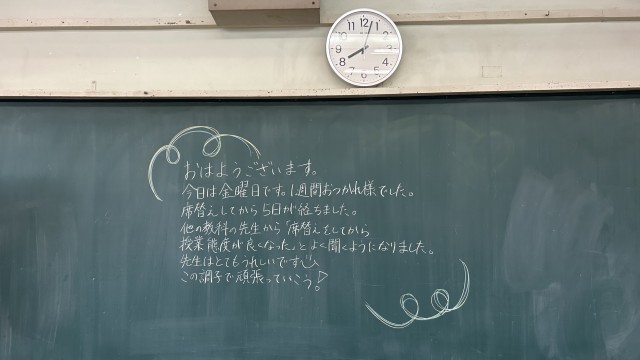 12
1
2
3
4
5
6
7
8
9
10
11
おはようございます。
今日は金曜日です。1週間おつかれ様でした。
席替えしてから5日が経ちました。
他の教科の先生から「席替えをしてから
授業態度が良くなった」とよく聞くようになりました。
先生はとてもうれしいです
この調子で頑張っていこう!